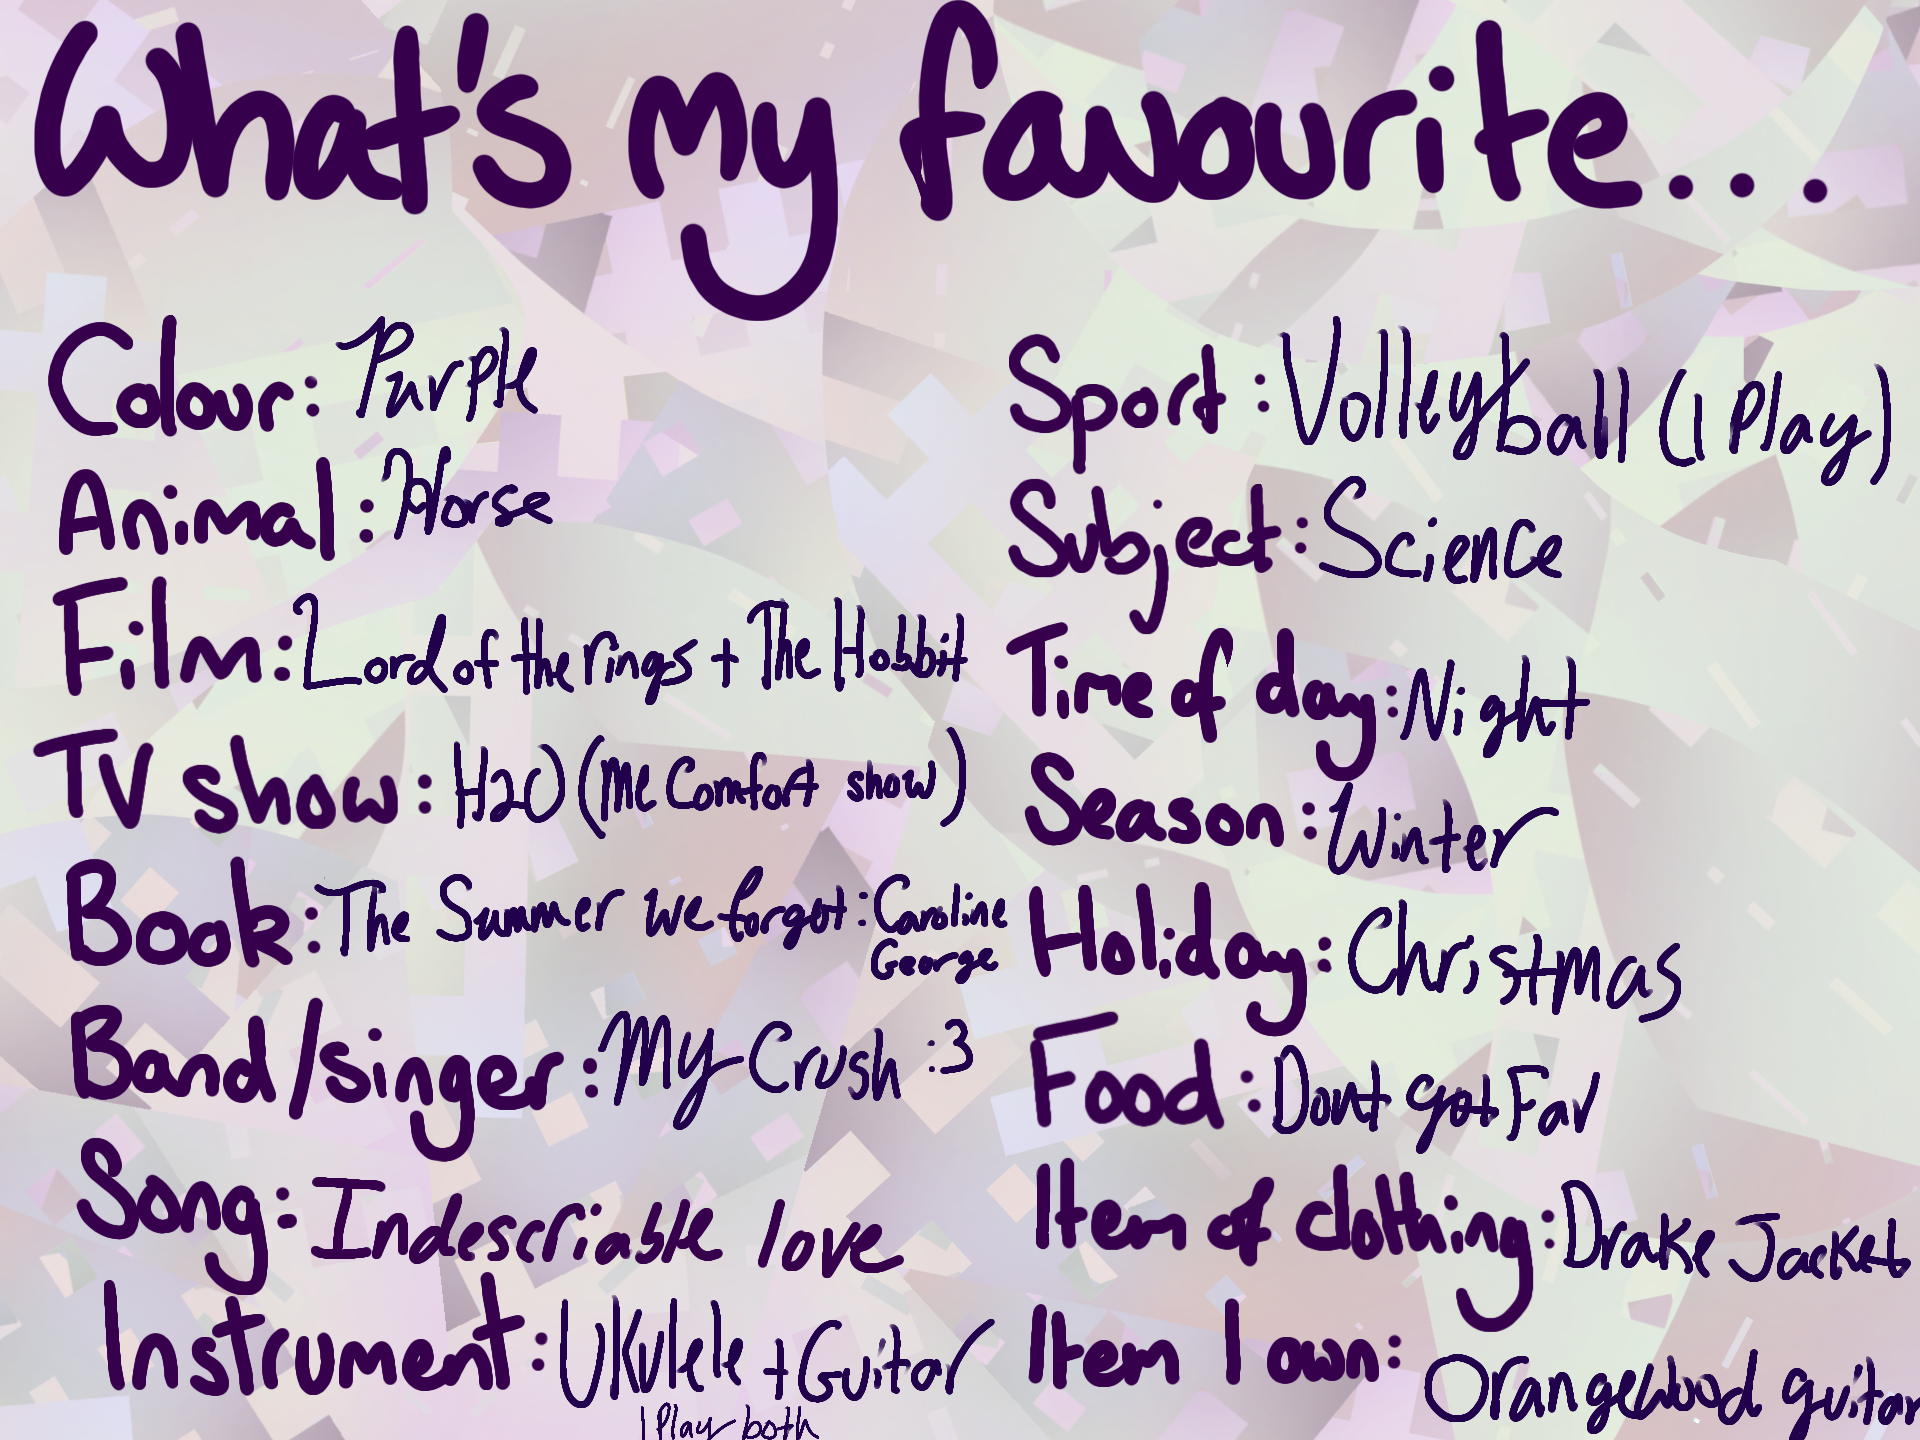 What's my favourite...
Colour: Purple
Animal: Horse
Film: Lord of the rings + The Hobbit
TV show: H2O (Me Comfort show)
Book: The Summer we forgot: Caroline
George
Band/singer: My Crush :3
Song: Indescriable love
Instrument: Ukulele + Guitar
I Play both
Sport: Volleyball (I Play)
Subject: Science
Time of day: Night
Season: Winter
Holiday: Christmas
Food: Dont got Fav
Item of clothing: Drake Jacket
Item I own:
Orangewood guitar